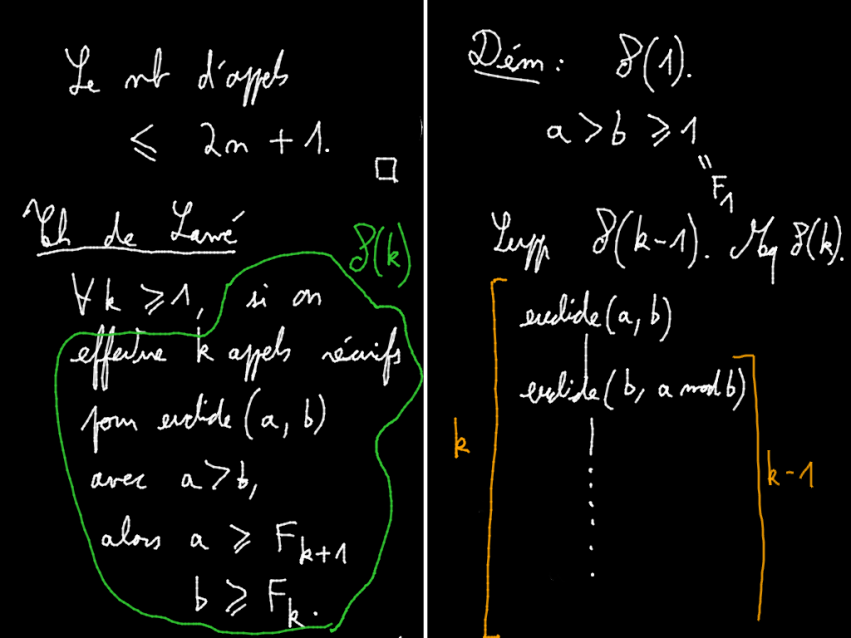 Le nb d'appels
≤ 2n + 1.
□
Th de Lamé
P(k)
∀k ≥ 1, si on
effectue k appels récursifs
pour euclide(a, b)
avec a > b,
alors a ≥ F_{k+1}
b ≥ F_k.
Dém : P(1).
a > b ≥ 1
"
F_1
Supp P(k-1). Mq P(k).
euclide(a, b)
euclide(b, a mod b)
k
k-1